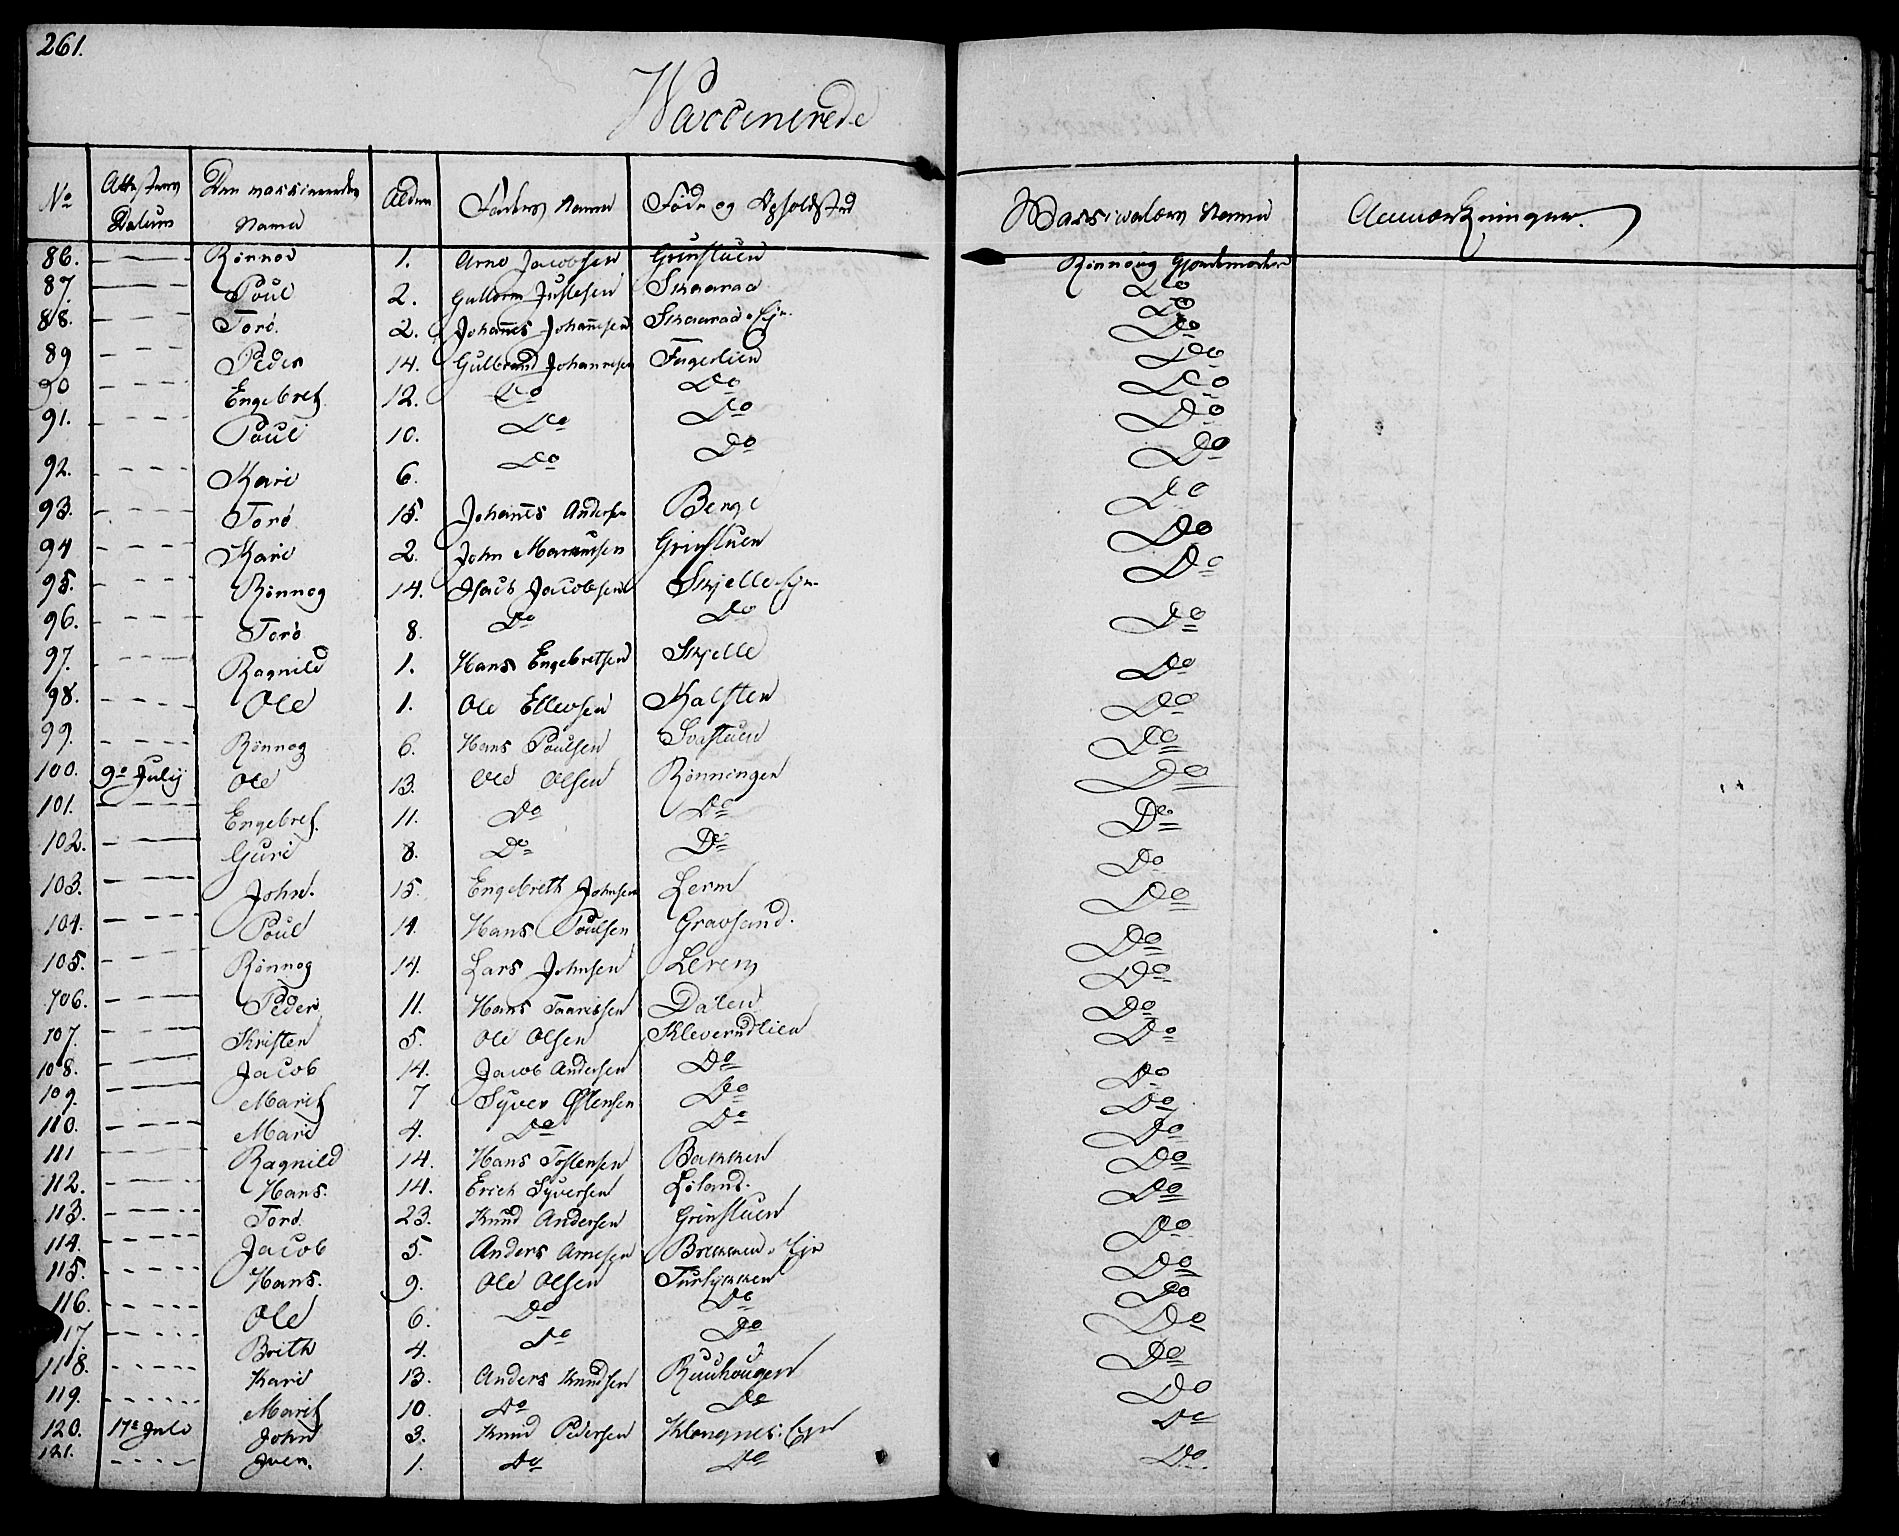 261.
Waccinerede
No | Attestens Datum | Den vaccineredes Navne | Alder | Faders Navne | Føde og Opholdsted | Vaccinateurs Navne | Anmærkninger.
86. | — | Rønnov | 1. | Arne Jacobsen | Grinstuen | Rønnoug Gjordemoder
87. | — | Poul | 2. | Guttorm Justesen | Skaarad | Do
88. | — | Torø. | 2. | Johannes Johannesen | Skaarad. Ejr. | Do
89 | — | Peder | 14. | Gulbrand Johannesen | Fagerlien | Do
90 | — | Engebret | 12. | Do | Do | Do
91. | — | Poul | 10. | Do | Do | Do
92. | — | Kari | 6. | Do | Do | Do
93. | — | Torø | 15. | Johannes Andersen | Berge | Do
94 | — | Kari | 2. | John | Grinstuen | Do
95. | — | Rønnog | 14. | Isach Jacobsen | Skjelle Ejr. | Do
96. | — | Torø | 8. | Do | Do | Do
97. | — | Ragnild | 1. | Hans Engebretsen | Skjelle | Do
98. | — | Ole | 1. | Ole Ellevsen | Kalsten | Do
99. | — | Rønnog | 6. | Hans Poulsen | Svastuen | Do
100. | 9de July | Ole | 13. | Ole Olsen | Rønningen | Do
101. | — | Engebret. | 11. | Do | Do | Do
102. | — | Guri | 8. | Do | Do | Do
103. | — | John. | 15. | Engebreth Johnsen | Lerm | Do
104. | — | Poul | 11. | Hans Poulsen | Gravsand. | Do
105. | — | Rønnog | 14. | Lars Johnsen | Lerem | Do
106. | — | Peder | 11. | Hans | Dalen | Do
107. | — | Kristen | 5. | Ole Olsen | Kleverudlien | Do
108. | — | Jacob | 14. | Jacob Andersen | Do | Do
109. | — | Marit | 7 | Syver Østensen | Do | Do
110. | — | Mari | 4. | Do | Do | Do
111 | — | Ragnild | 14. | Hans Tostensen | Bakken | Do
112. | — | Hans. | 14. | Erich Syversen | Løland. | Do
113. | — | Torø | 23. | Knud Andersen | Grinstuen | Do
114. | — | Jacob | 5. | Anders Arnesen | Brekken. Ejr | Do
115. | — | Hans. | 9. | Ole Olsen | Turlykken | Do
116. | — | Ole | 6. | Do | Do | Do
117. | — | Brith | 4. | Do | Do | Do
118. | — | Kari | 13. | Anders Knudsen | Ruuhougen | Do
119. | — | Marit | 10. | Do | Do | Do
120. | 17de Juli | John | 3. | Knud Pedersen | Klongnes: Ejr | Do
121. | — | Iver. | 1. | Do | Do | Do